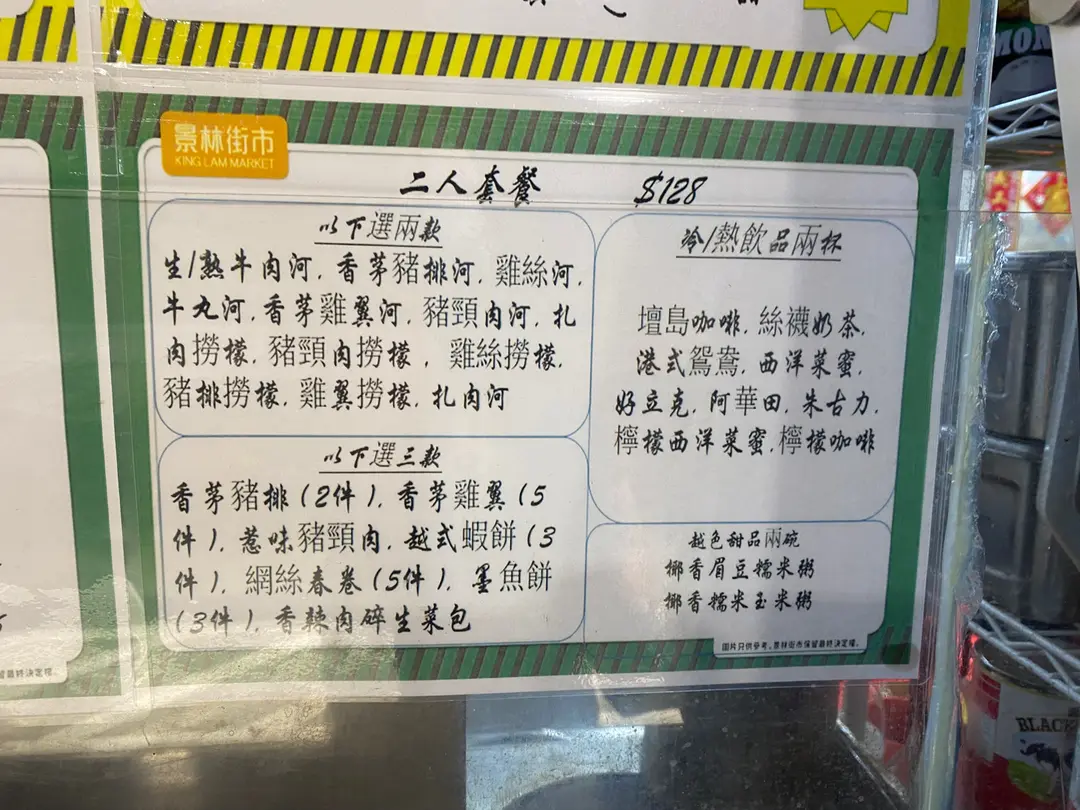 景林街市
KING LAM MARKET
二人套餐 $128
以下選兩款
生/熟牛肉河, 香茅豬排河, 雞絲河,
牛丸河, 香茅雞翼河, 豬頸肉河, 扎
肉撈檬, 豬頸肉撈檬, 雞絲撈檬,
豬排撈檬, 雞翼撈檬, 扎肉河
以下選三款
香茅豬排(2件), 香茅雞翼(5
件), 惹味豬頸肉, 越式蝦餅(3
件), 網絲春卷(5件), 墨魚餅
(3件), 香辣肉碎生菜包
冷/熱飲品兩杯
壇島咖啡, 絲襪奶茶,
港式鴛鴦, 西洋菜蜜,
好立克, 阿華田, 朱古力,
檸檬西洋菜蜜, 檸檬咖啡
越色甜品兩碗
椰香眉豆糯米粥
椰香糯米玉米粥
圖片只供參考, 景林街市保留最終決定權。
留最終決定權。
BLACK